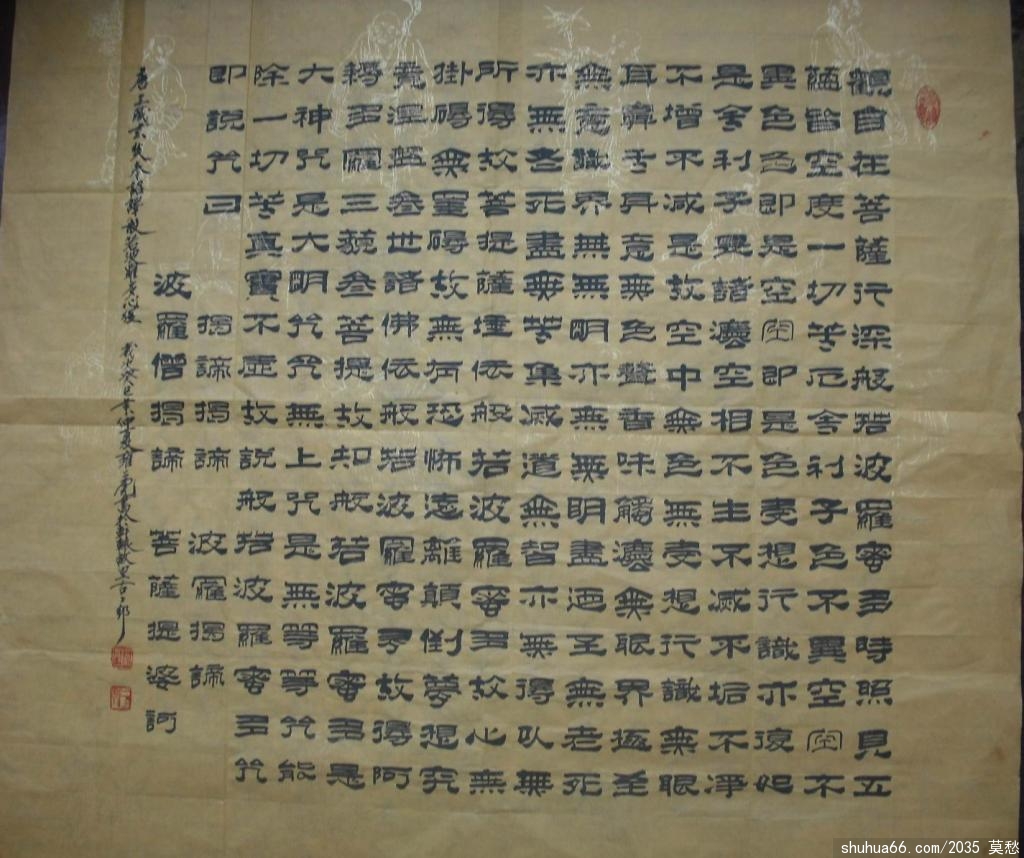 觀自在菩薩行深般若波羅蜜多時照見五
蘊皆空度一切苦厄舍利子色不異空空不
異色色即是空空即是色受想行識亦復如
是舍利子是諸灋空相不生不滅不垢不淨
不增不減是故空中無色無受想行識無眼
耳鼻舌身意無色聲香味觸灋無眼界迺至
無意識界無無明亦無無明盡迺至無老死
亦無老死盡無苦集滅道無智亦無得以無
所得故菩提薩埵依般若波羅蜜多故心無
掛碍無罣碍故無有恐怖遠離顛倒夢想究
竟涅槃叁世諸佛依般若波羅蜜多故得阿
耨多羅三藐叁菩提故知般若波羅蜜多是
大神咒是大明咒咒無上咒是無等等咒能
除一切苦真實不虛故說般若波羅蜜多咒
即說咒曰 揭諦揭諦 波羅揭諦
波羅僧揭諦 菩薩提婆訶
唐三藏玄奘奉詔譯般若波羅蜜多心經 歲次癸巳年仲夏
shuhua66.com/2035 莫愁